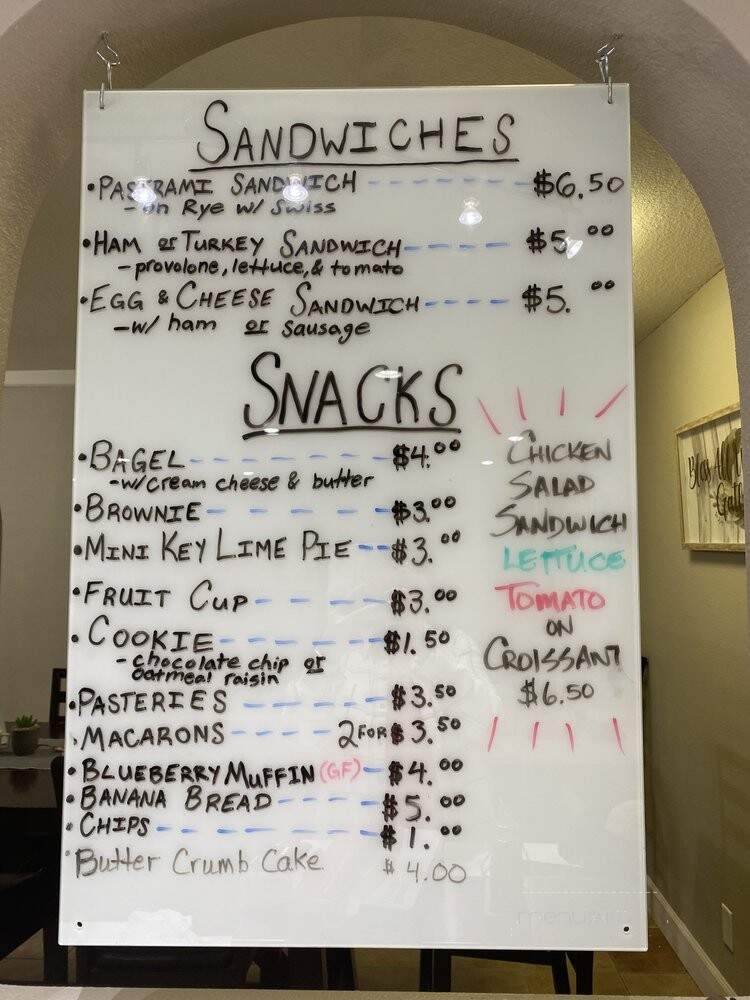 SANDWICHES
• PASTRAMI SANDWICH ------- $6.50
- on Rye w/ Swiss
• HAM or TURKEY SANDWICH ----- $5.00
- provolone, lettuce, & tomato
• EGG & CHEESE SANDWICH ---- $5.00
- w/ ham or sausage
SNACKS
• BAGEL -------- $4.00
- w/ cream cheese & butter
• BROWNIE ----- $3.00
• MINI KEY LIME PIE -- $3.00
• FRUIT CUP ---- $3.00
• COOKIE ------ $1.50
- chocolate chip or
oatmeal raisin
• PASTERIES ----- $3.50
• MACARONS ---- 2 FOR $3.50
• BLUEBERRY MUFFIN (GF) - $4.00
• BANANA BREAD ---- $5.00
• CHIPS ------- $1.00
• Butter Crumb Cake $4.00
CHICKEN
SALAD
SANDWICH
LETTUCE
TOMATO
ON
CROISSANT
$6.50